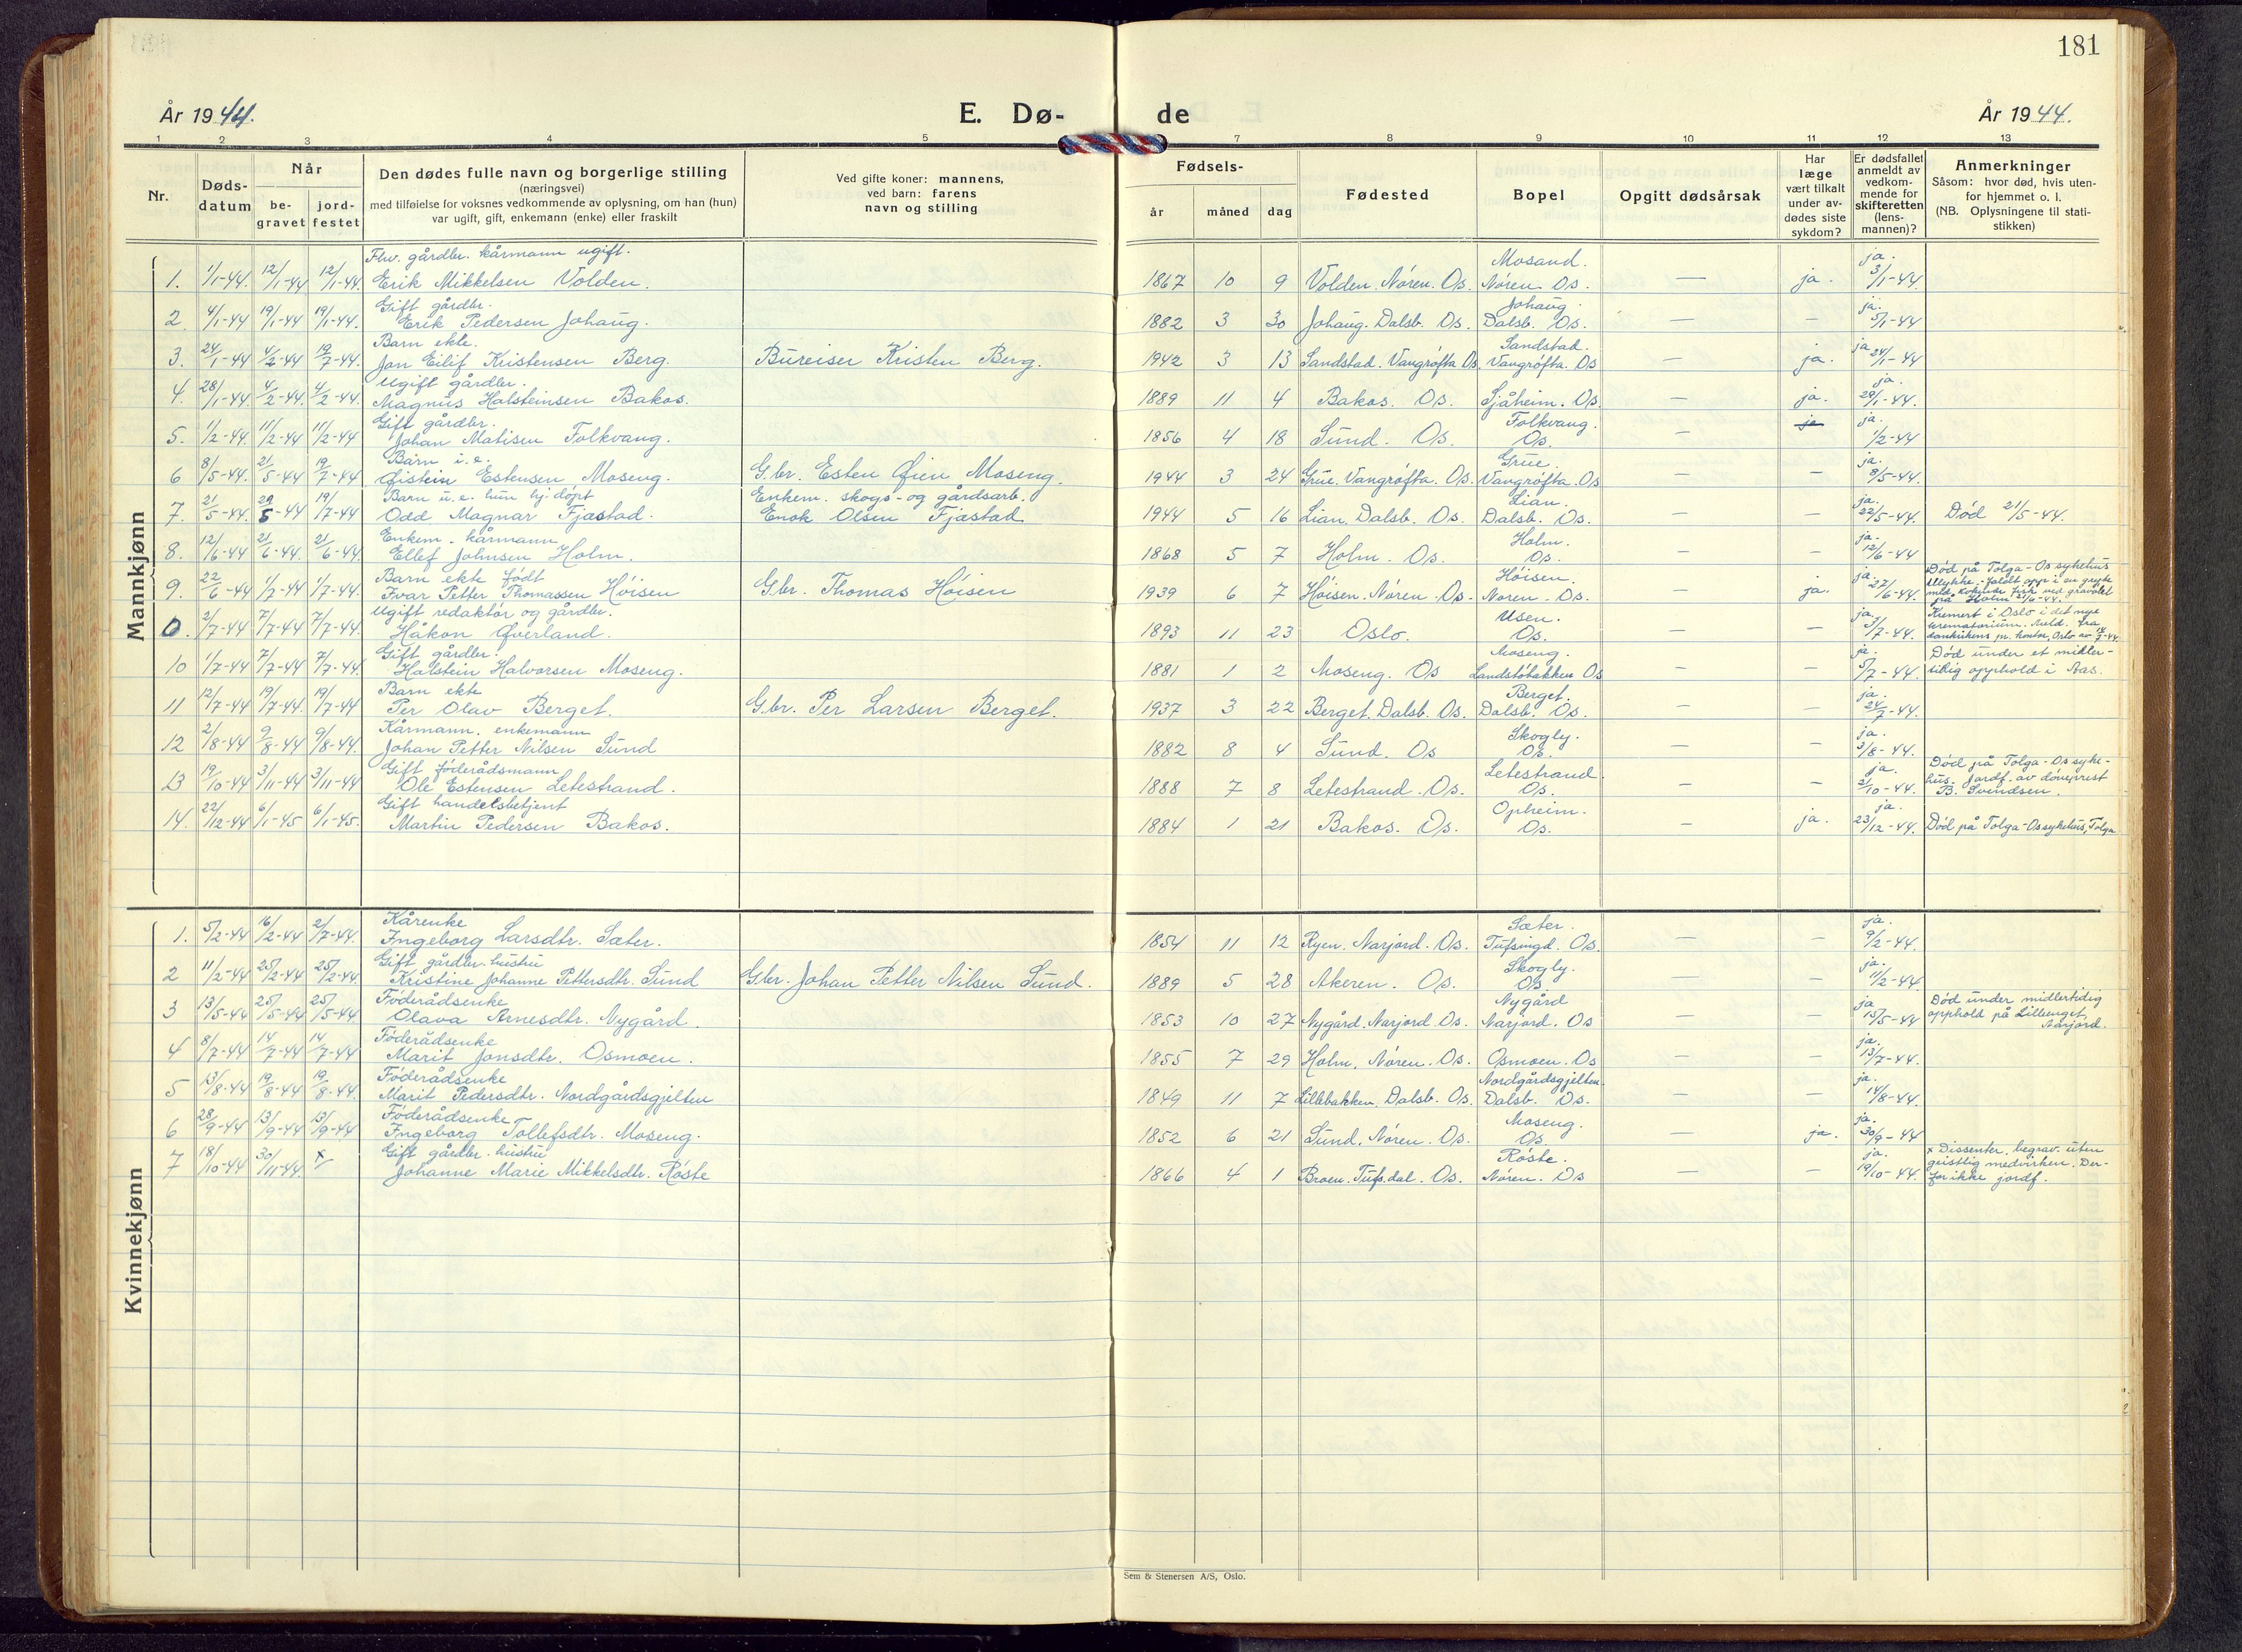 181
År 1944.
E. Dø-
de
År 1944.
1 2 3 4 5 7 8 9 10 11 12 13
Nr.
Døds-
datum
Når
be-
gravet
jord-
festet
Den dødes fulle navn og borgerlige stilling
(næringsvei)
med tilføielse for voksnes vedkommende av oplysning, om han (hun)
var ugift, gift, enkemann (enke) eller fraskilt
Ved gifte koner: mannens,
ved barn: farens
navn og stilling
Fødsels-
år
måned
dag
Fødested
Bopel
Opgitt dødsårsak
Har
læge
vært tilkalt
under av-
dødes siste
sykdom?
Er dødsfallet
anmeldt av
vedkom-
mende for
skifteretten
(lens-
mannen)?
Anmerkninger
Såsom: hvor død, hvis uten-
for hjemmet o. l.
(NB. Oplysningene til stati-
stikken)
Mannkjønn
Fhv. gårdbr. kårmann ugift. Mosand. ja.
1. 1/1-44. 12/1-44 12/1-44. Erik Mikkelsen Volden. 1867 10 9 Volden. Nóren. Os. Nóren. Os. — ja. 3/1-44.
Gift gårdbr. Johaug. ja.
2. 4/1-44 19/1-44 19/1-44. Erik Pedersen Johaug. 1882 3 30 Johaug. Dalsb. Os. Dalsb. Os. — — 5/1-44
Barn ekte. Sandstad. ja
3. 24/1-44 4/2-44 19/7-44 Jon Eilif Kristensen Berg. Bureiser Kristen Berg. 1942 3 13 Sandstad. Vangrófta Os. Vangrófta. Os — ja. 24/1-44
Ugift gårdbr. ja.
4. 28/1-44 4/2-44 4/2-44. Magnus Halsteinsen Bakos. 1889 11 4 Bakos. Os. Sjåheim. Os. — ja. 29/1-44.
Gift gårdbr. Folkvang. ja.
5. 1/2-44. 11/2-44 11/2-44 Johan Matisen Folkvang. 1856 4 18 Sund. Os. Os. — ja 1/2-44
Barn u.e. Grue. ja.
6 8/5-44. 21/5-44 19/7-44 Øistein Estensen Moseng. G.br. Esten Øien Moseng. 1944 3 24 Grue. Vangrófta. Os. Vangrófta. Os — — 8/5-44.
Barn u.e. hun hj. dópt Enkem. skogs- og gårdsarb. Lian. ja.
7. 21/5-44. 29/5-44 19/7-44 Odd Magnar Fjæstad. Enok Olsen Fjæstad 1944 5 16 Lian. Dalsb. Os. Dalsb. Os. — — 22/5-44. Død 21/5-44.
Enkem. kårmann Holm. ja.
8. 12/6-44 21/6-44. 21/6-44. Ellef Johnsen Holm. 1868 5 7 Holm. Os. Os. — — 12/6-44
Barn ekte født Hóisen. ja
9. 22/6-44 1/7-44 1/7-44. Ivar Petter Thomassen Hóisen G.br. Thomas Hóisen 1939 6 7 Hóisen. Nóren. Os. Noren. Os. — ja. 27/6-44.
Død på Tolga-Os sykehus
Ulykke.
på Holm 21/6-44.
Ugift redaktór og gårdbr. Usen. ja.
0. 2/7-44 7/7-44 7/7-44 Håkon Øverland. 1893 11 23 Oslo. Os. — — 3/7-44.
Kremert i Oslo i det nye
krematorium. Meld. fra
Gift gårdbr. Moseng. ja.
10 1/7-44 7/7-44 7/7-44. Halstein Halvorsen Moseng. 1881 1 2 Moseng. Os Landstóbakken Os — — 5/7-44.
Død under et midler-
tidig opphold i Aas.
Barn ekte Berget. ja.
11 12/7-44 19/7-44. 19/7-44 Per Olav Berget. G.br. Per Larsen Berget. 1937 3 22 Berget. Dalsb. Os. Dalsb. Os. — — 24/7-44.
Kårmann. enkemann Skogly. ja.
12 2/8-44 9/8-44 9/8-44. Johan Petter Nilsen Sund 1882 8 4 Sund. Os Os. — — 3/8-44.
Gift fóderådsmann Letestrand. ja.
13 19/10-44 3/11-44 3/11-44 Ole Estensen Letestrand. 1888 7 8 Letestrand. Os. Os. — — 21/10-44.
Død på Tolga-Os syke-
hus. Jordf. av
B. Svendsen.
Gift handelsbetjent Opheim. ja.
14. 22/12-44 6/1-45 6/1-45. Martin Pedersen Bakos. 1884 1 21 Bakos. Os. Os. — ja. 23/12-44. Død på Tolga-Os sykehus, Tolga
Kvinnekjønn
Kårenke Sæter. ja.
1. 5/2-44 16/2-44 2/7-44. Ingeborg Larsdtr. Sæter. 1854 11 12 Ryen. Narjord. Os. Tufsingd. Os. — — 9/2-44.
Gift gårdbr. hustru Skogly. ja.
2 11/2-44 25/2-44 25/2-44. Kristine Johanne Pettersdtr. Sund G.br. Johan Petter Nilsen Sund. 1889 5 28 Akeren. Os. Os. — — 11/2-44
Fóderådsenke Nygård ja
3 13/5-44 25/5-44 25/5-44. Olava Arnesdtr. Nygård. 1853 10 27 Nygård. Narjord. Os. Narjord. Os — — 15/5-44
Død under midlertidig
opphold på Lilleenget,
Narjord.
Fóderådsenke ja.
4 8/7-44 14/7-44 14/7-44 Marit Jonsdtr. Osmoen. 1855 7 29 Holm. Nóren. Os. Osmoen. Os — — 13/7-44.
Fóderådsenke Nordgårdsgjelten. ja.
5 13/8-44 19/8-44 19/8-44. Marit Pedersdtr. Nordgårdsgjelten 1849 11 7 Lillebakken. Dalsb. Os. Dalsb. Os. — — 14/8-44.
Fóderådsenke Moseng. ja.
6 28/9-44 13/9-44 13/9-44 Ingeborg Tollefsdtr. Moseng. 1852 6 21 Sund. Nóren. Os. Os. — ja. 30/9-44
Gift gårdbr. hustru Róste. ja.
7 18/10-44 30/11-44. x Johanne Marie Mikkelsdtr. Róste 1866 4 1 Broen. Tufs.dal. Os. Nóren. Os — — 19/10-44.
x Dissenter, begrav. uten
geistlig medvirken. Der-
for ikke jordf.
Sem & Stenersen A/S, Oslo.